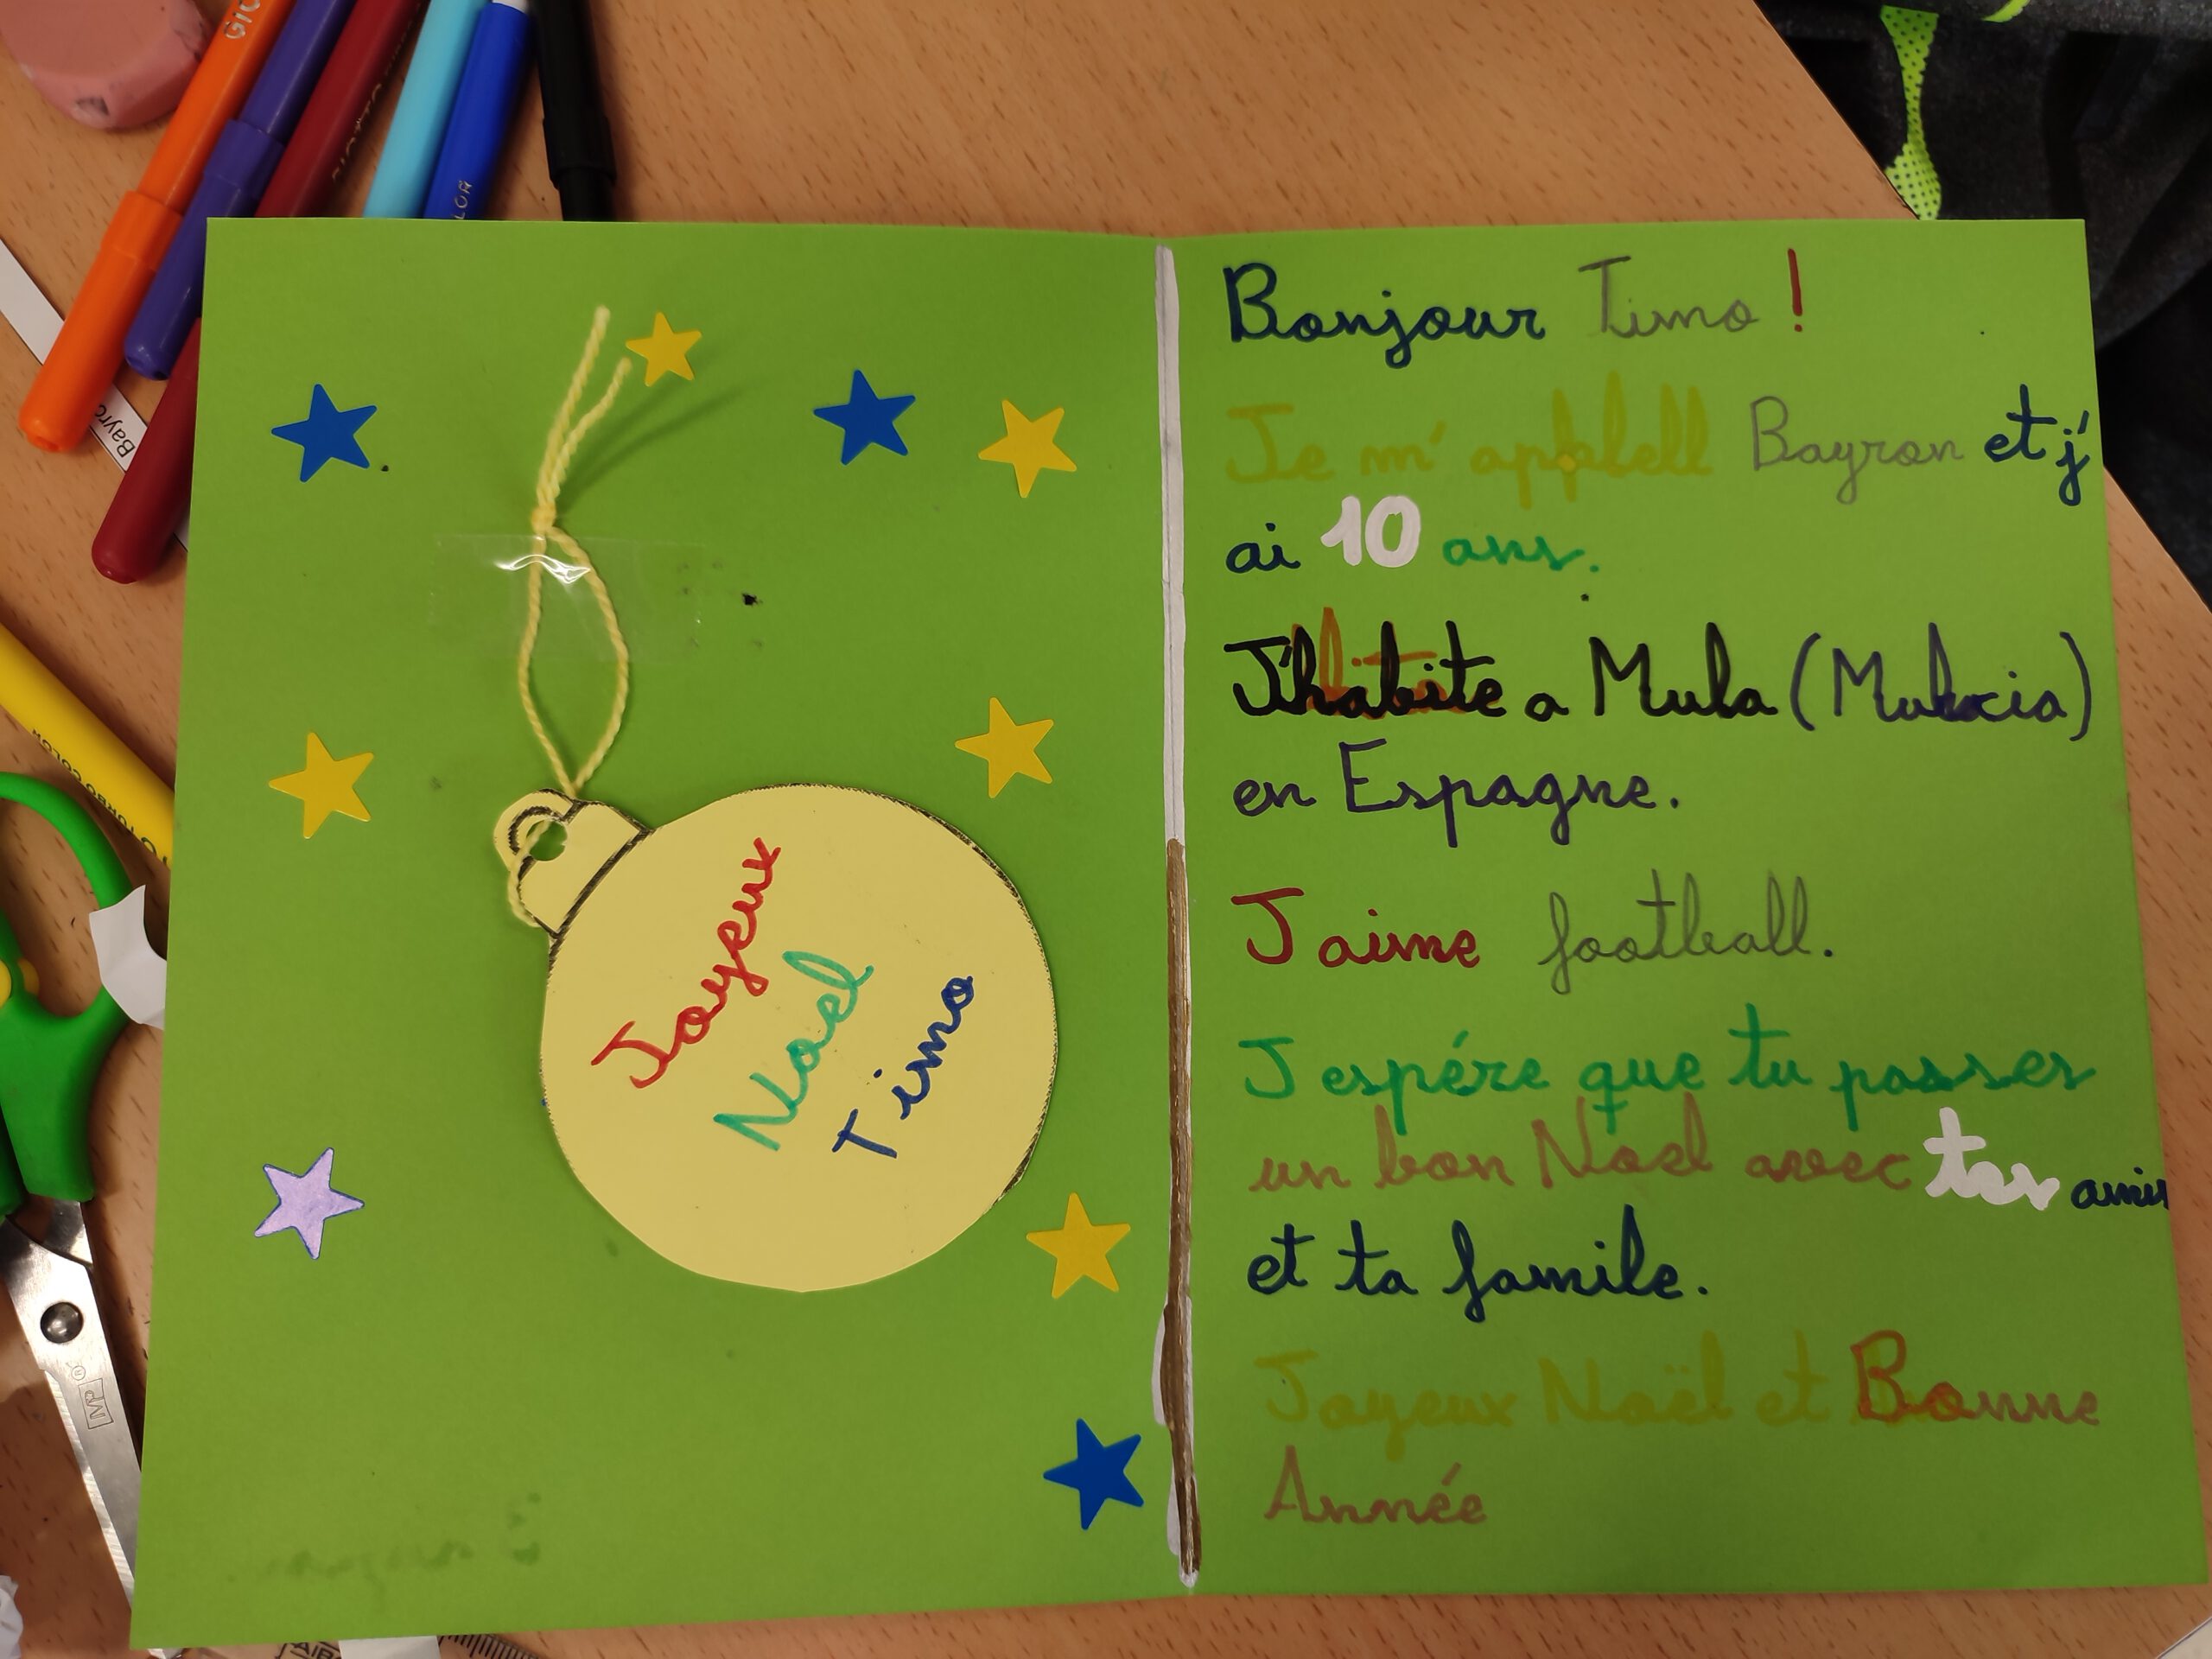 GIO
GIOTTO
LOR
Bayro
TURBO COLOR
Joyeux
Noel
Timo
Bonjour Timo !
Je m'appblell Bayron et j'
ai 10 ans.
J'habite a Mula (Mulrcia)
en Espagne.
J aime football.
J espére que tu passes
un bon Noel avec tes amis
et ta famile.
Joyeux Noël et Bonne
Année
MP